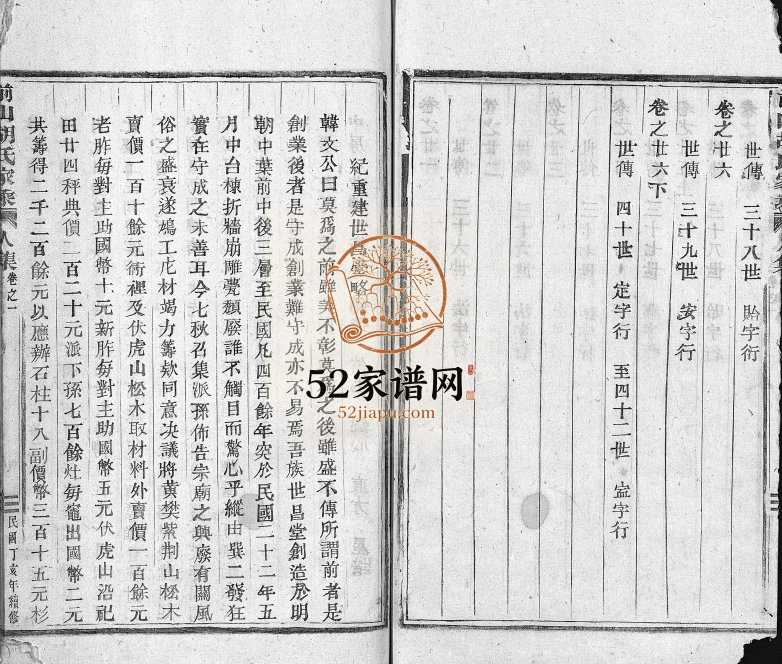 世傳　三十八世　貽字行
卷之廿六
世傳　三十九世　安字行
卷之廿六下
世傳　四十世　定字行　至四十二世
字行
紀重建世
略
韓文公曰莫爲之前雖美不彰莫爲之後雖盛不傳所謂前者是
創業後者是守成創業難守成亦不易焉吾族世昌堂創造於明
朝中葉前中後三層至民國凡四百餘年突於民國二十二年五
月中台棟折牆崩雕甍頹廢誰不觸目而驚心乎縱由巽二發狂
實在守成之未善耳今七秋召集派孫佈告宗廟之興廢有關風
俗之盛衰遂鳩工庀材竭力籌欵同意决議將黃樊紫荆山松木
賣價一百十餘元術裡及伏虎山松木取材料外賣價一百餘元
老胙每對主助國幣十元新胙每對主助國幣五元伏虎山沿祀
田廿四秤典價二百二十元派下孫七百餘灶每竈出國幣二元
共籌得二千二百餘元以應辦石柱十八副價幣三百十五元杉
前山胡氏家乘　人集　卷之一　民國丁亥年續修
52家谱网
52jiapu.com